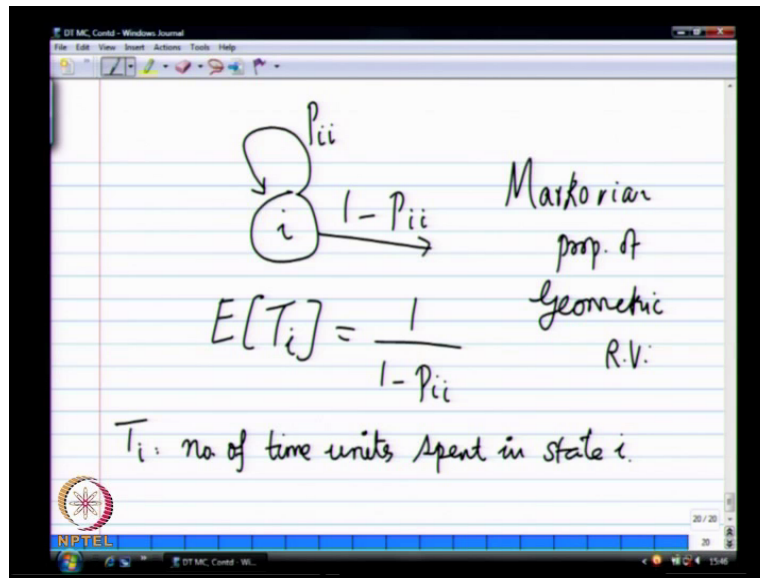 DT MC, Contd - Windows Journal
File Edit View Insert Actions Tools Help
Pii
i
1 - Pii
Markovian
prop. of
Geometric
R.V.
E[Ti] = 1 / 1 - Pii
Ti : no. of time units spent in state i.
NPTEL
20 / 20
20
DT MC, Contd - Wi...
15:46